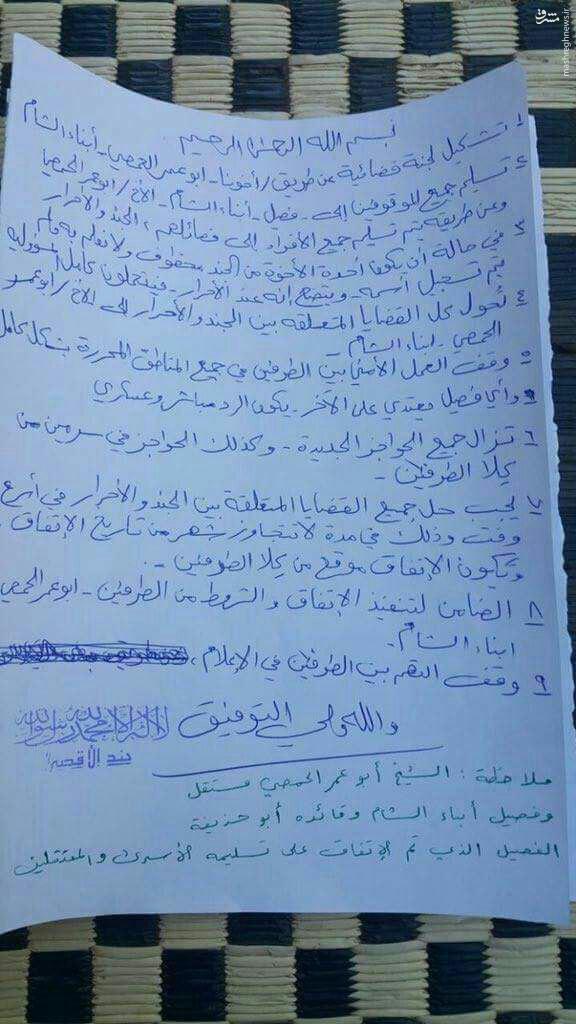 بسم الله الرحمن الرحيم
١ تشكيل لجنة قضائية عن طريق / أخونا - ابو عمر الحمصي - أبناء الشام
٢ تسليم جميع الموقوفين إلى - فصل - أبناء الشام - الأخ / ابو عمر الحمصي
وعن طريقه يتم تسليم جميع الأفراد إلى فصائلهم، الجند والاحرار
٣ في حالة أن يكون أحد الأخوة من الجند مخطوف ولا نعلم به
يتم تسجيل أسمه - ويتضح إنه عند الأحرار - فيتحملون كامل المسؤوليه
٤ تُحول كل القضايا المتعلقه بين الجند والأحرار إلى الاخ / ابو عمر
الحمصي - ابناء الشام
٥ وقف العمل الأمني بين الطرفين في جميع المناطق المحررة بشكل كامل
وأي فصيل معتدي على الآخر - يكون الرد مباشر وعسكري
٦ تزال جميع الحواجز الجديدة - وكذلك الحواجز في سرمين من
كِلا الطرفين -
٧ يجب حل جميع القضايا المتعلقة بين الجند والأحرار في أسرع
وقت وذلك في مدة لا تتجاوز شهر من تاريخ الإتفاق .
ويكون الإتفاق موقع من كِلا الطرفين - .
٨ الضامن لتنفيذ الإتفاق والشروط من الطرفين - ابو عمر الحمصي
ابناء الشام .
٩ وقف التهم بين الطرفين في الإعلام ،
والله ولي التوفيق
لا إله إلا الله محمد رسول الله
جند الأقصى
ملاحظة : الشيخ أبو عمر الحمصي مستقل
وفصيل أبناء الشام وقائده أبو حذيفة
الفصيل الذي تم الإتفاق على تسليمه الأسرى والمعتقلين
مشرق
mashreghnews.ir